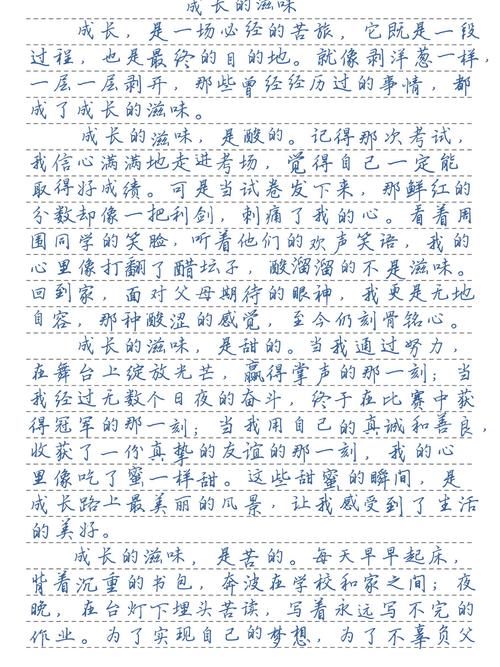 成长的滋味
成长，是一场必经的苦旅，它既是一段
过程，也是最终的目的地。就像剥洋葱一样，
一层一层剥开，那些曾经经历过的事情，都
成了成长的滋味。
成长的滋味，是酸的。记得那次考试，
我信心满满地走进考场，觉得自己一定能
取得好成绩。可是当试卷发下来，那鲜红的
分数却像一把利剑，刺痛了我的心。看着周
围同学的笑脸，听着他们的欢声笑语，我的
心里像打翻了醋坛子，酸溜溜的不是滋味。
回到家，面对父母期待的眼神，我更是无地
自容，那种酸涩的感觉，至今仍刻骨铭心。
成长的滋味，是甜的。当我通过努力，
在舞台上绽放光芒，赢得掌声的那一刻；当
我经过无数个日夜的奋斗，终于在比赛中获
得冠军的那一刻；当我用自己的真诚和善良，
收获了一份真挚的友谊的那一刻，我的心
里像吃了蜜一样甜。这些甜蜜的瞬间，是
成长路上最美丽的风景，让我感受到了生活
的美好。
成长的滋味，是苦的。每天早早起床，
背着沉重的书包，奔波在学校和家之间；夜
晚，在台灯下埋头苦读，写着永远写不完的
作业。为了实现自己的梦想，为了不辜负父